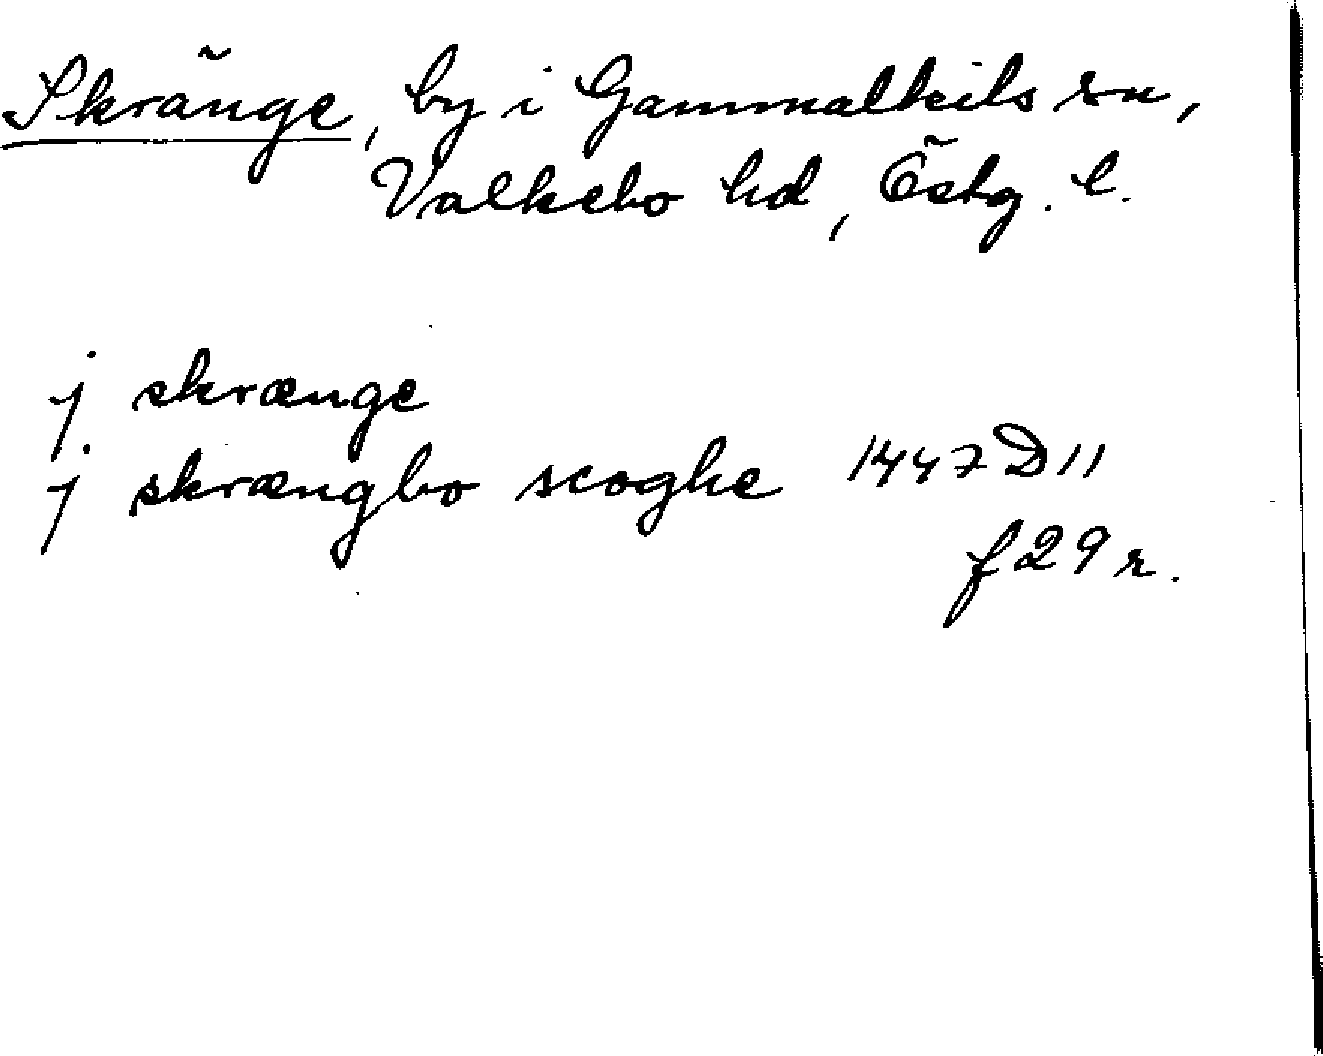 Skränge, by i Gammalkils sn,
Valkebo hd, Östg. l.
j skrænge
j skrængbo scoghe 1447 D 11
f 29 r.